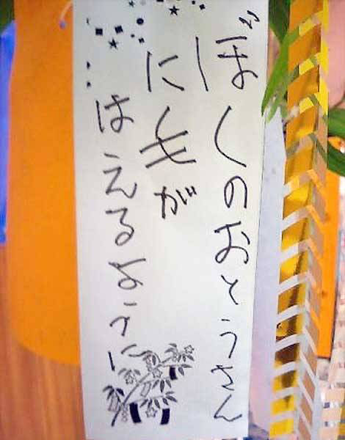 ぼくのおとうさん
に毛が
はえるように